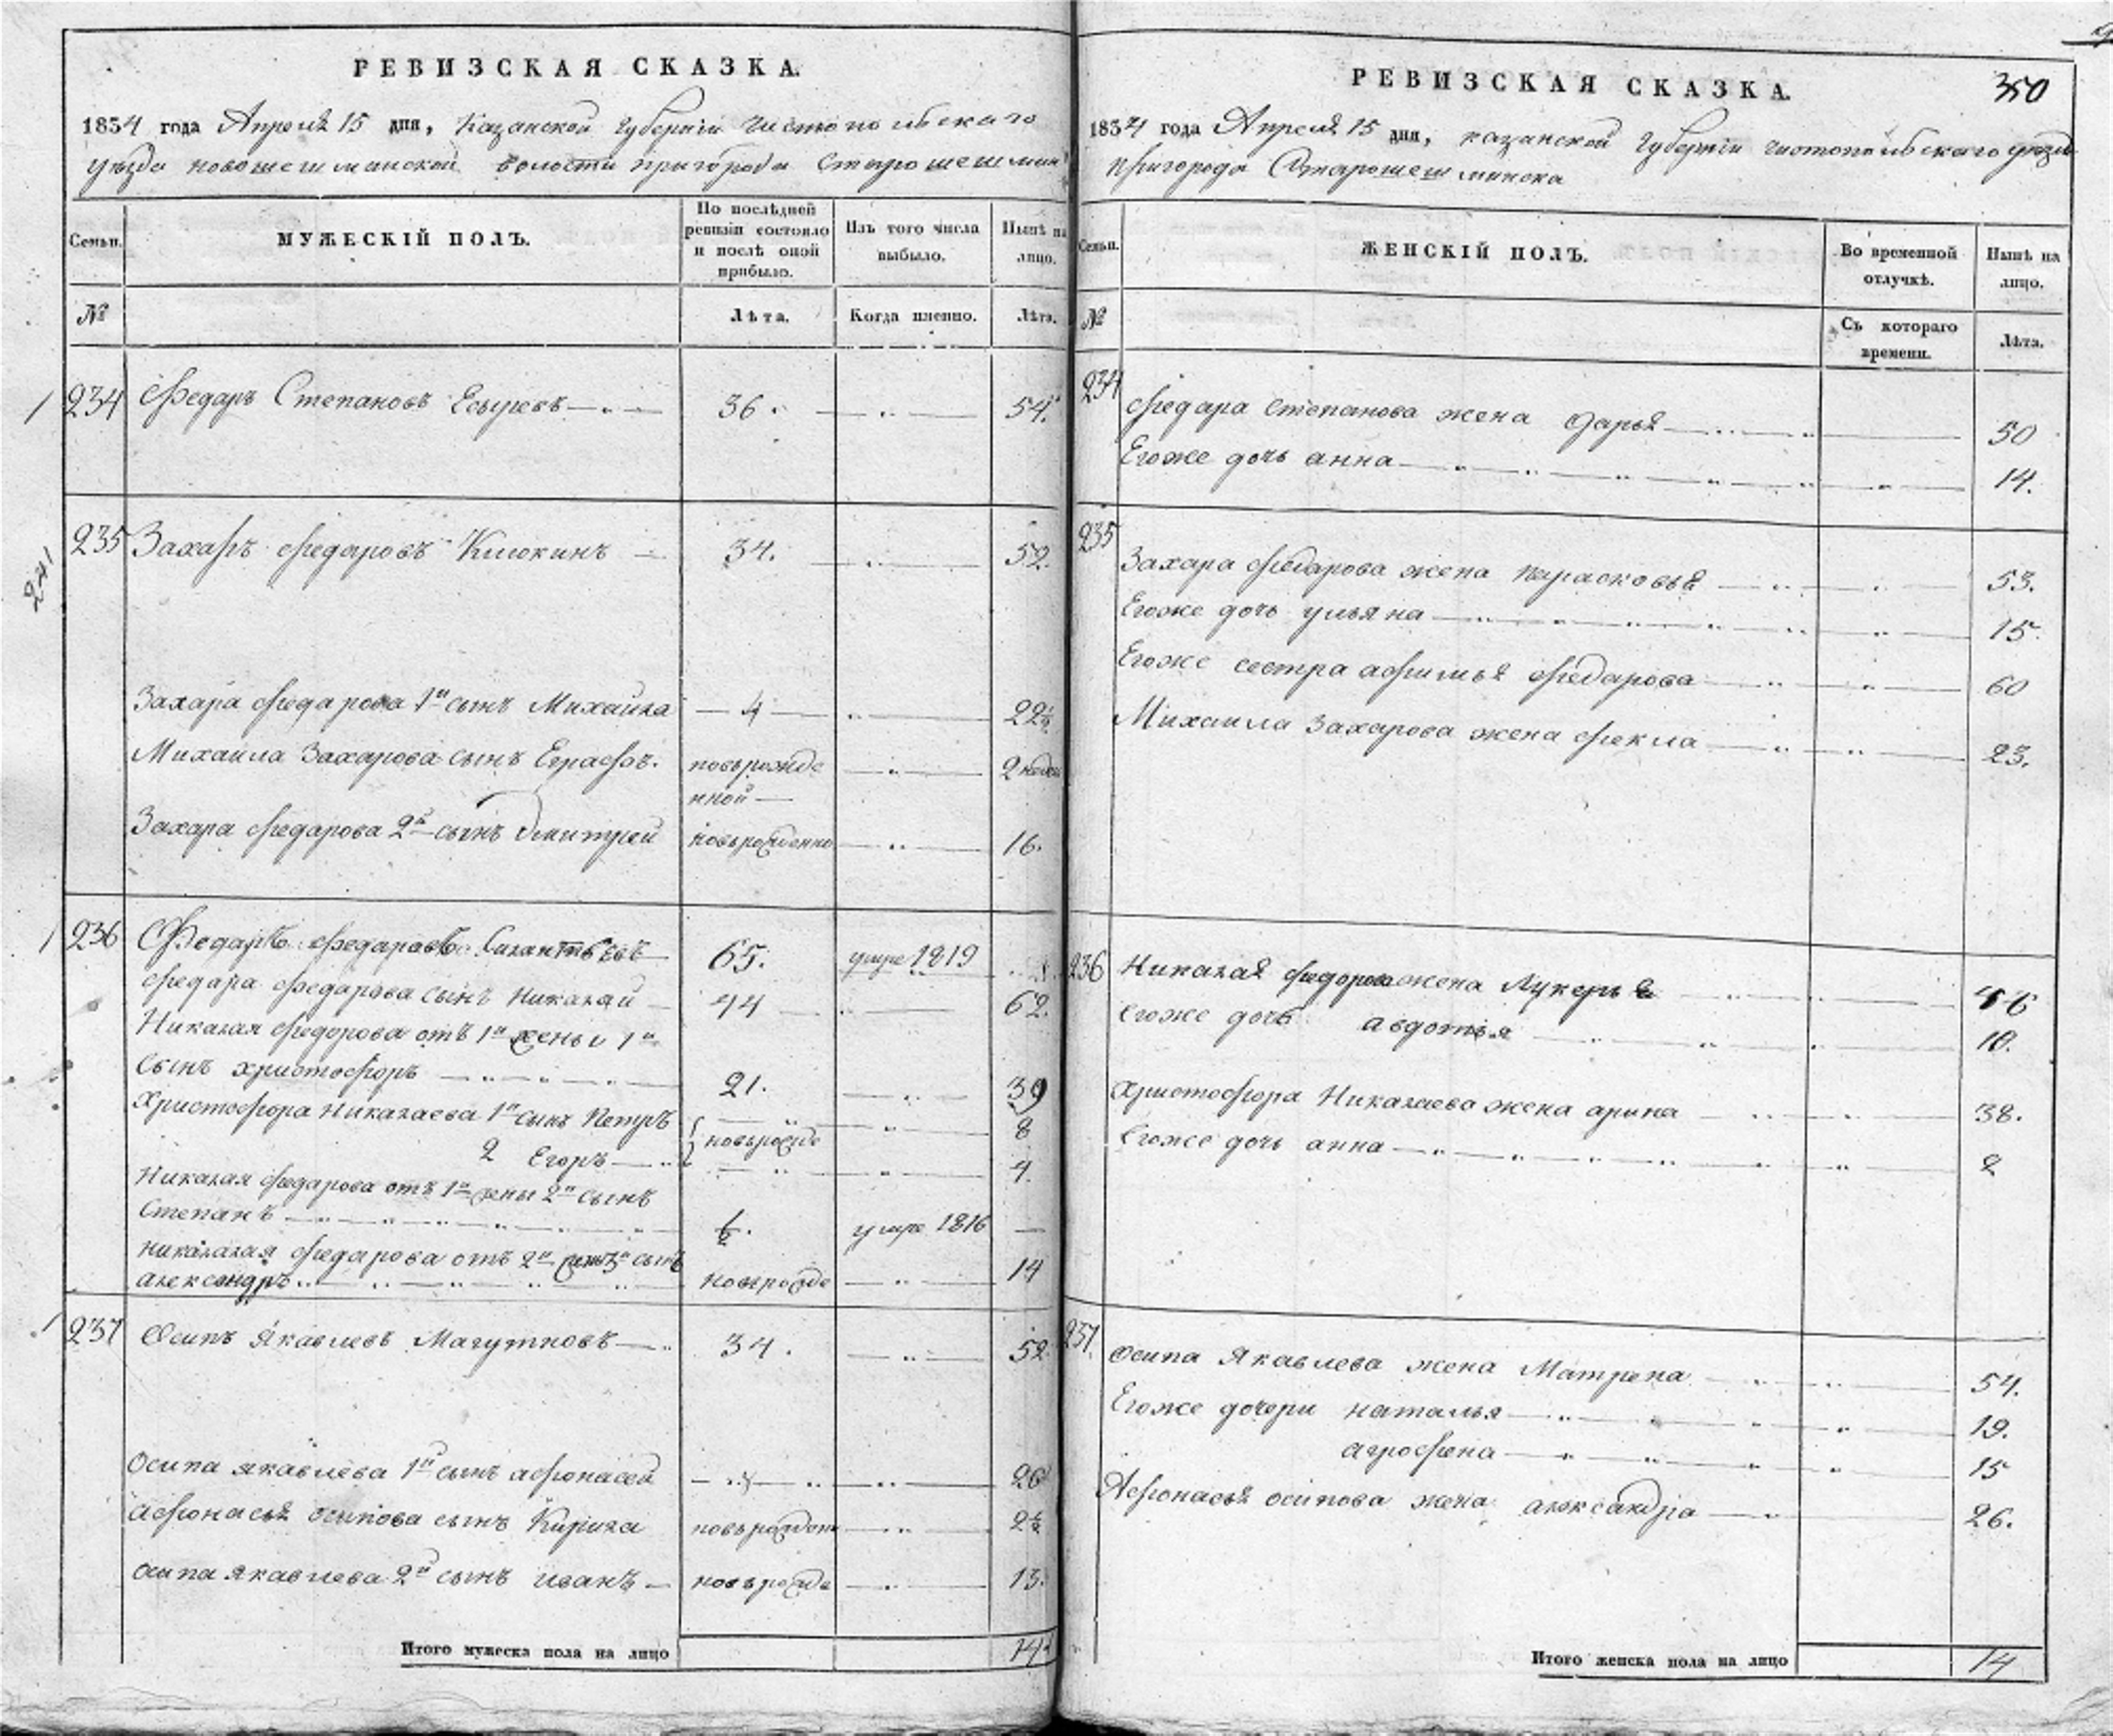 РЕВИЗСКАЯ СКАЗКА.
1834 года Апреля 15 дня, Казанской Губернии Чистопольскаго
уезда новошешминской волости пригорода Старошешмин
Семьи.
МУЖЕСКІЙ ПОЛЪ.
По послѣдней ревизіи состояло и послѣ оной прибыло.
Изъ того числа выбыло.
Нынѣ на лицо.
№
Лѣта.
Когда именно.
Лѣта.
1 234 Федаръ Степановъ 36. 54.
241
235 Захаръ Федаровъ Клюкинъ 34. 52.
Захара Федарова 1й сынъ Михаила 4 22½
Михаила Захарова сынъ Евграфъ. новърожде 2 недел
нной
Захара Федарова 2й сынъ Дмитрей новърожденно 16.
1 236 Федаръ Федаравъ 65. умре 1819
Федара Федарова сынъ Николай 44 62.
Николая Федорова отъ 1й жены 1й
сынъ христофоръ 21. 39
Христофора Николаева 1й сынъ Петръ 8
новърожде
2 Егоръ 4.
Николая Федарова отъ 1й жены 2й сынъ
Степанъ ½. умре 1816
Николая Федарова отъ 2й жены 3й сынъ
александръ новърожде 14
1 237 Осипъ Якавлевъ 34. 52.
Осипа якавлева 1й сынъ афонасей 26
афонасья осипова сынъ Кирила новърожден 2½
осипа якавлева 2й сынъ иванъ новърожде 13.
Итого мужеска пола на лицо 14
350
РЕВИЗСКАЯ СКАЗКА.
1834 года Апреля 15 дня, казанской Губернии чистопольскаго уезда
пригорода Старошешминска
Семьи.
ЖЕНСКІЙ ПОЛЪ.
Во временной отлучкѣ.
Нынѣ на лицо.
№
Съ котораго времени.
Лѣта.
234 Федара степанова жена дарья 50
Егоже дочь анна 14.
235 Захара Федарова жена парасковья 53.
Егоже дочь ульяна 15.
Егоже сестра афимья Федарова 60
Михаила Захарова жена Фекла 23.
236 Николая Федорова жена Лукерья 46
егоже дочь авдотья 10.
Христофора Николаева жена арина 38.
егоже дочь анна 2
237. осипа Якавлева жена Матрена 54.
Егоже дочери наталья 19.
агрофена 15
Афонасья осипова жена александра 26.
Итого женска пола на лицо 14